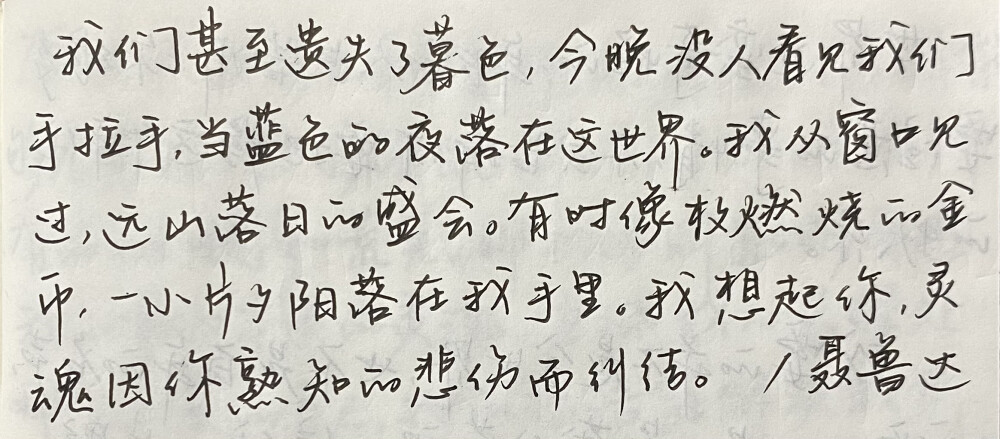 我们甚至遗失了暮色，今晚没人看见我们
手拉手，当蓝色的夜落在这世界。我从窗口见
过，远山落日的盛会。有时像枚燃烧的金
币，一小片夕阳落在我手里。我想起你，灵
魂因你熟知的悲伤而纠结。/聂鲁达